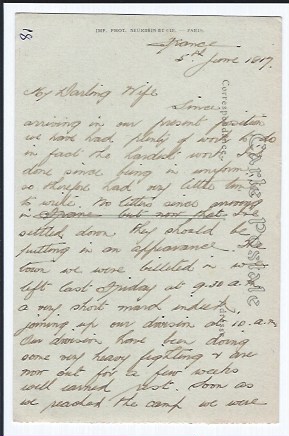 18
IMP. PHOT. NEURDEIN ET CIE. — PARIS.
France
5th June 1917.
My Darling Wife
Since
arriving in our present position
we have had plenty of work to do
in fact the hardest work
done since being in uniform
so therefore had very little time
to write. No letters since arriving
in France but now that
settled down they should be
putting in an appearance. The
town we were billeted in we
left last Friday at 9.30 a.m
a very short march indeed,
joining up our division at 10. a.m
Our division have been doing
some very heavy fighting & are
now out for a few weeks
well earned rest. Soon as
we reached the camp we were
Carte Postale
Correspondance